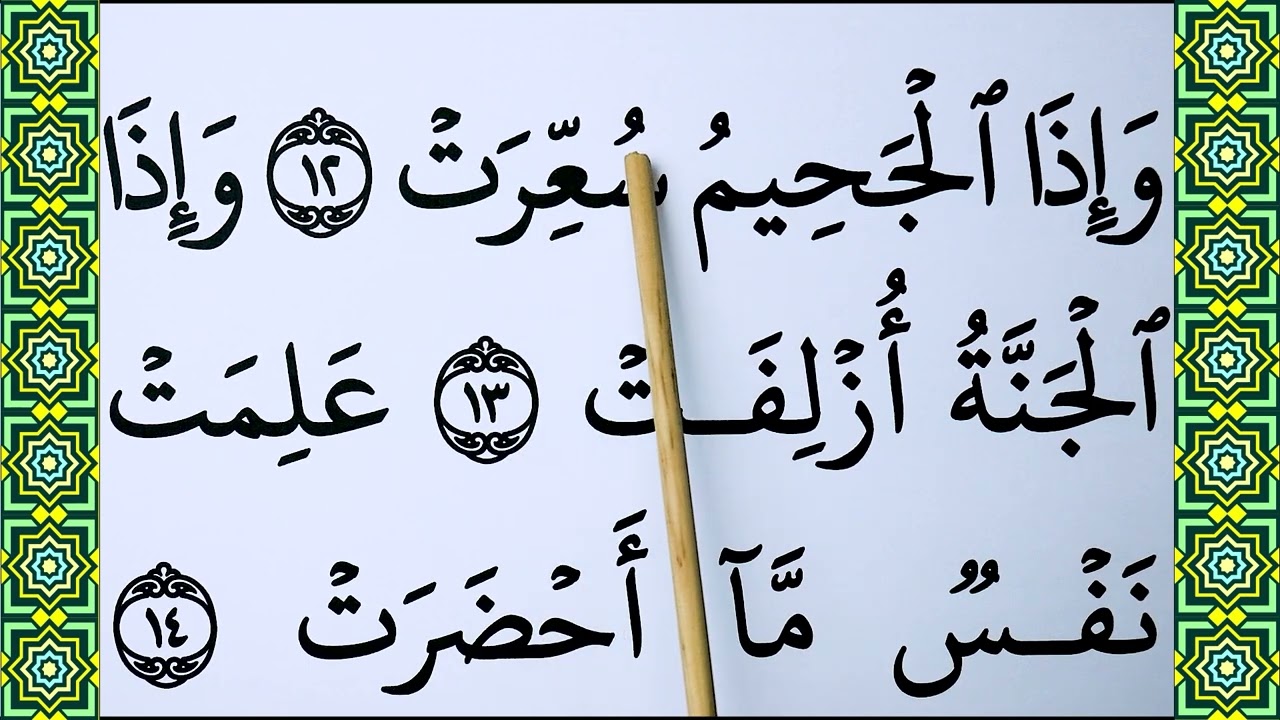 وَإِذَا ٱلْجَحِيمُ سُعِّرَتْ ١٢ وَإِذَا
ٱلْجَنَّةُ أُزْلِفَتْ ١٣ عَلِمَتْ
نَفْسٌ مَّآ أَحْضَرَتْ ١٤